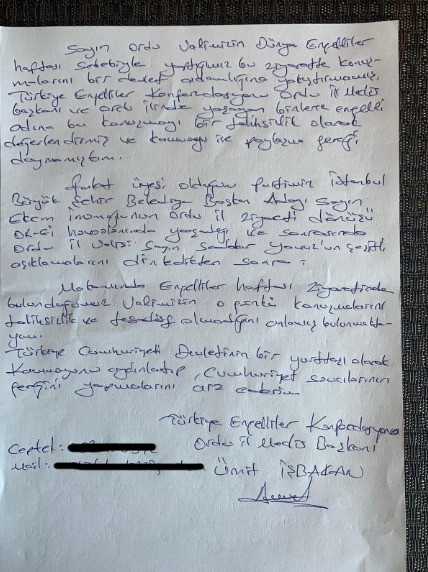 Sayın Ordu Valimizin Dünya Engelliler
haftası sebebiyle yaptığımız bu ziyarette konuş-
malarını bir devlet adamlığına yakıştıramamış,
Türkiye Engelliler Konfederasyonu Ordu İl Meclis
başkanı ve Ordu ilinde yaşayan binlerce engelli
adına bu konuşmayı bir talihsizlik olarak
değerlendirmiş ve kamuoyu ile paylaşma gereği
duymamıştım.
Fakat üyesi olduğum partimin İstanbul
Büyük Şehir Belediye Başkan Adayı Sayın
Ekrem imamoğlunun Ordu il ziyareti dönüşü
Or-Gi havaalanında yaşadığı ve sonrasında
Ordu il Valisi Sayın Seddar Yavuz'un çeşitli
açıklamalarını dinledikten sonra;
Makamında Engelliler haftası ziyaretinde
bulunduğumuz Valimizin o günkü konuşmalarını
talihsizlik ve tesadüf olmadığını anlamış bulunmakta-
yım.
Türkiye Cumhuriyeti Devletinin bir yurttaşı olarak
Kamuoyunu aydınlatıp, Cumhuriyet savcılarının
gereğini yapmalarını arz ederim
Türkiye Engelliler Konfederasyonu
Ordu il Meclis Başkanı
Ceptel:
Mail: Ümit İŞBAKAN